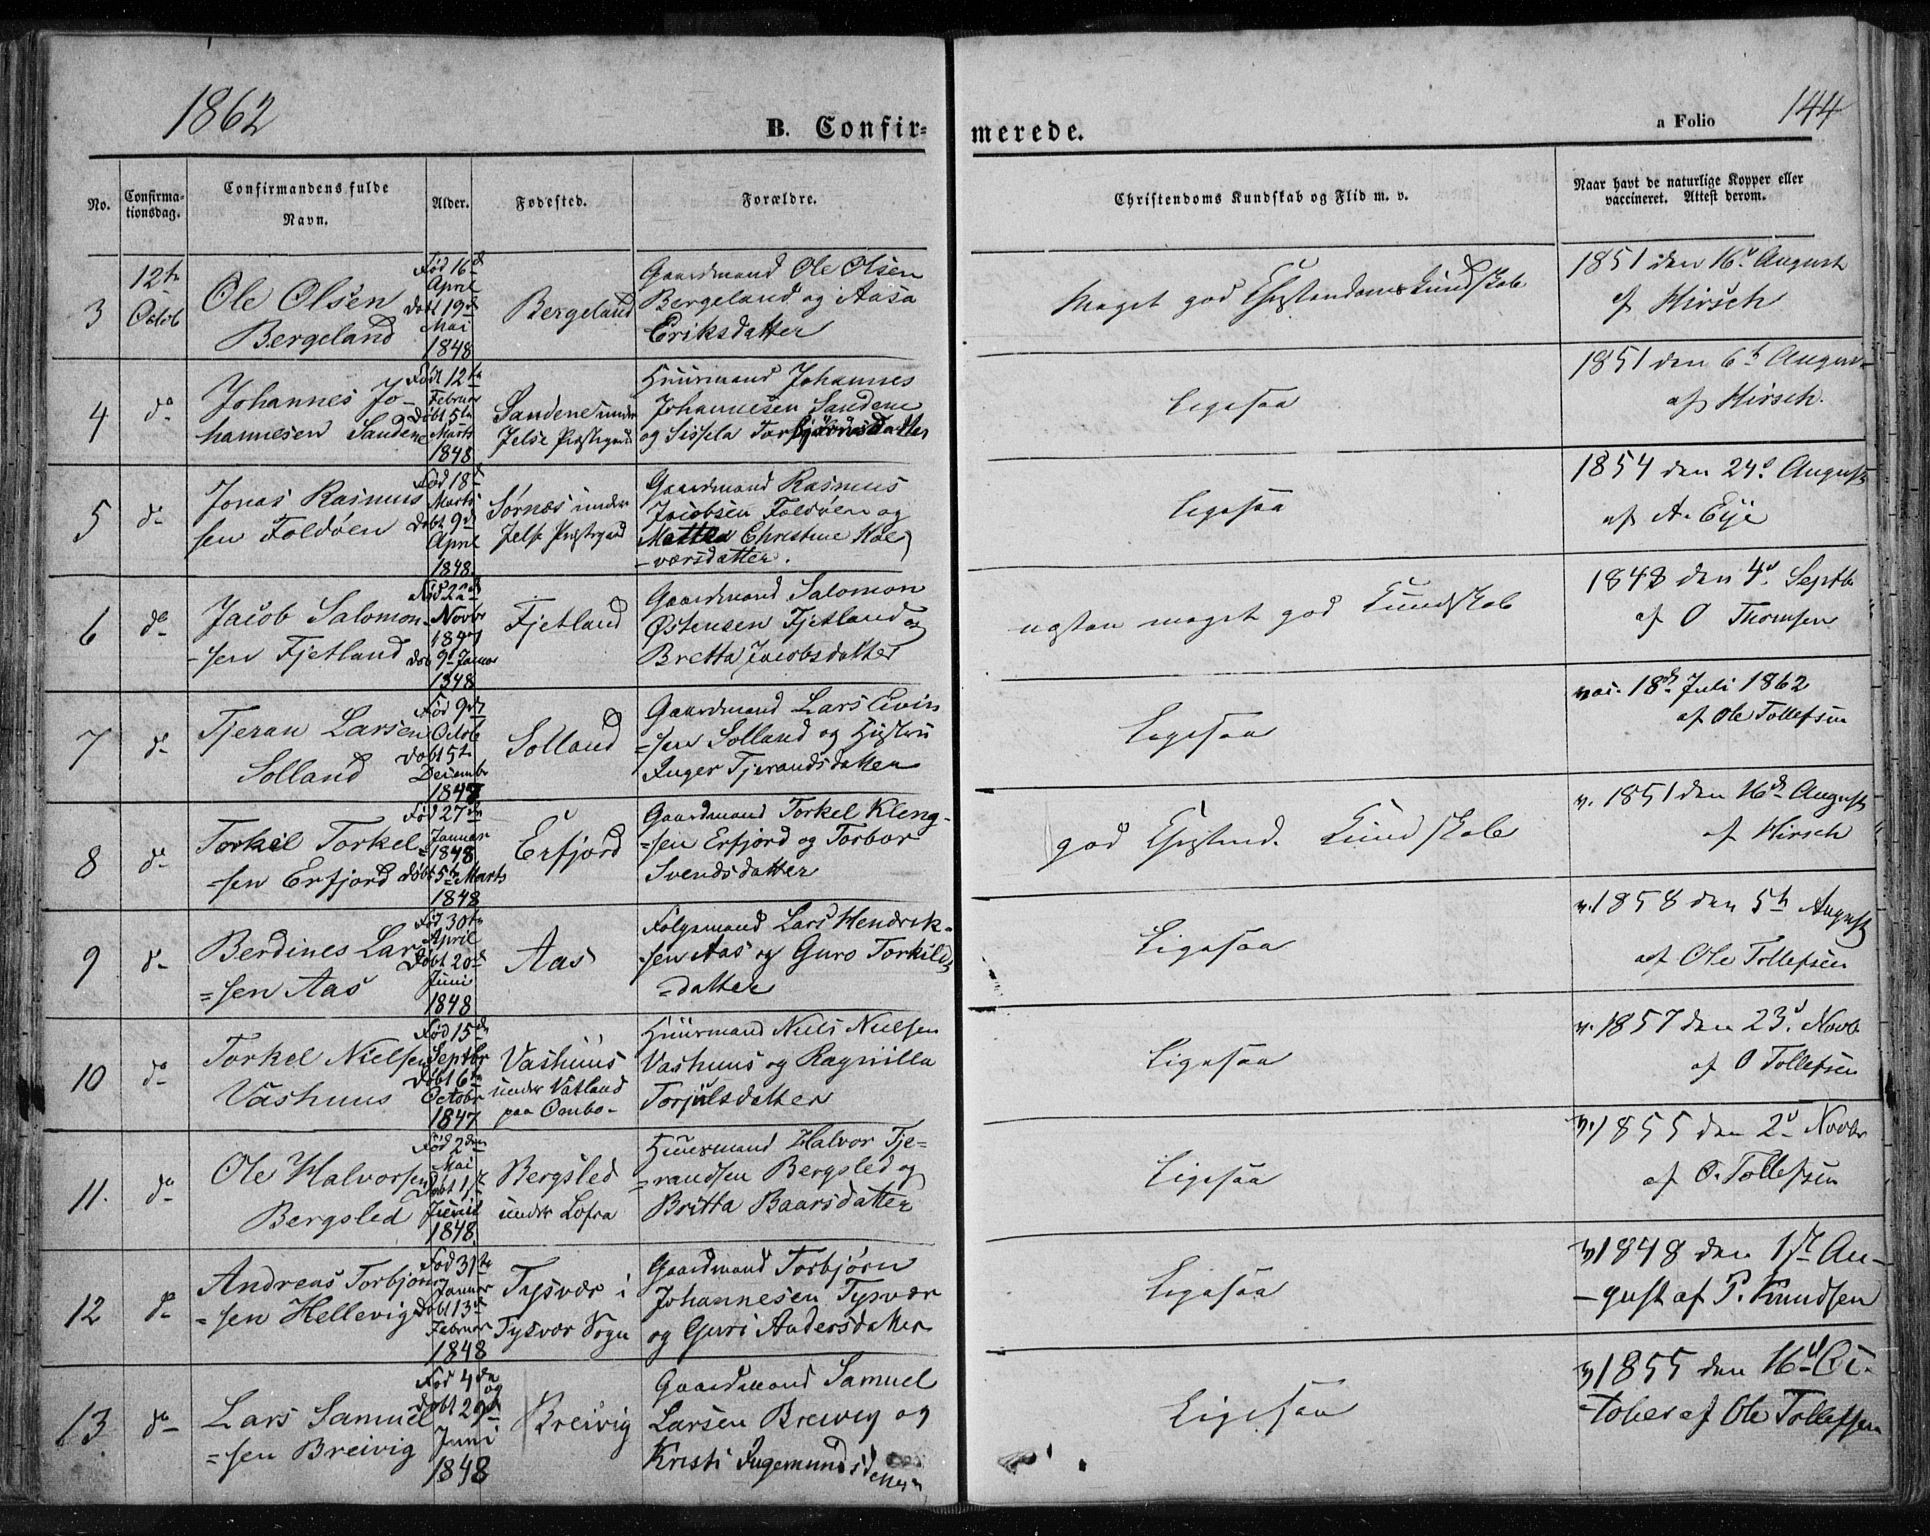 1862
B. Confirmerede.
a Folio 144
No.
Confirmationsdag.
Confirmandens fulde Navn.
Alder.
Fødested.
Forældre.
Christendoms Kundskab og Flid m. v.
Naar havt de naturlige Kopper eller
vaccineret. Attest derom.
3
12te
Octob
Ole Olsen
Bergeland
Fød 16d
April
døbt 19d
Mai
1848
Bergeland
Gaardmand Ole Olsen
Bergeland og Aasa
Eriksdatter
Meget god Christendoms Kundskab
1851 den 16d August
af Hirsch
4
do
Johannes Jo-
hannesen Sandene
Født 12te
Februar
Døbt 5te
Marts
1848
Sandene under
Jelse Præstegaard
Huusmand Johannes
Johannesen Sandene
og Sissela Torbjørnsdatter
Ligesaa
1851 den 6te August
af Hirsch.
5
do
Jonas Rasmus
sen Foldøen
Fød 18d
Marts
Døbt 9d
April
1848
Sørnæs under
Jelse Præstegaard
Gaardmand Rasmus
Jacobsen Foldøen og
Mattea Christine Hal
-vorsdatter.
Ligesaa
1854 den 24d August
af A. Eije
6
do
Jacob Salomon
-sen Fjetland
Fød 22d
Novbr
1847
døb 9d Januar
1848
Fjetland
Gaardmand Salomon
Østensen Fjetland og
Bretta Jacobsdatter
næsten meget god Kundskab
1848 den 4d Septb
af O Thomsen
7
do
Tjeran Larsen
Solland
Fød 9de
Octob
Døbt 5te
Decembr
1847
Solland
Gaardmand Lars Eivin
=sen Solland og Hustru
Inger Tjerandsdatter
Ligesaa
vac. 18de Juli 1862
af Ole Tollefsen
8
do
Torkel Torkel
=sen Erfjord
Fød 27de
Januar
1848
døbt 5te Marts
1848
Erfjord
Gaardmand Torkel Kleng-
=sen Erfjord og Torbor
Svendsdatter
god Christend. Kundskab
v. 1851 den 16de August
af Hirsch
9
do
Berdines Lar
=sen Aas
Fød 30te
April
Døbt 20d
Juni
1848
Aas
Følgemand Lars Hendrik-
-sen Aas og Guro Torkilds
=datter
Ligesaa
v. 1858 den 5te August
af Ole Tollefsen
10
do
Torkel Nielsen
Vashuus
Fød 15de
Septbr
Døbt 6te
Octobr
1847
Vashuus
under Vatland
paa Ombo-
Huusmand Niels Nielsen
Vashuus og Ragnilla
Torjulsdatter
Ligesaa
v. 1857 den 23d Novb
af O Tollefsen
11.
do
Ole Halvorsen
Bergsled
Fød 2den
Mai
Døbt 1ste
Juni
1848.
Bergsled
under Lofra
Huusmand Halvor Tje=
=randsen Bergsled og
Britta Baarsdatter
Ligesaa
v. 1855 den 2d Novbr
af O. Tollefsen
12
do
Andreas Torbjørn
=sen Hellevig
Fød 31te
Januar
Døbt 13de
Februar
1848
Tysvær i
Tysvær Sogn
Gaardmand Torbjørn
Johannesen Tysvær
og Guri Andersdatter
Ligesaa
v 1848 den 1ste Au-
-gust af P. Knudsen
13
do
Lars Samuel
=sen Breivig
Fød 4de
og
Døbt 29de
Juni
1848
Breivig
Gaardmand Samuel
Larsen Breivig og
Kristi Ingemundsdatter
Ligesaa
v 1855 den 16d Oc-
-tober af Ole Tollefsen